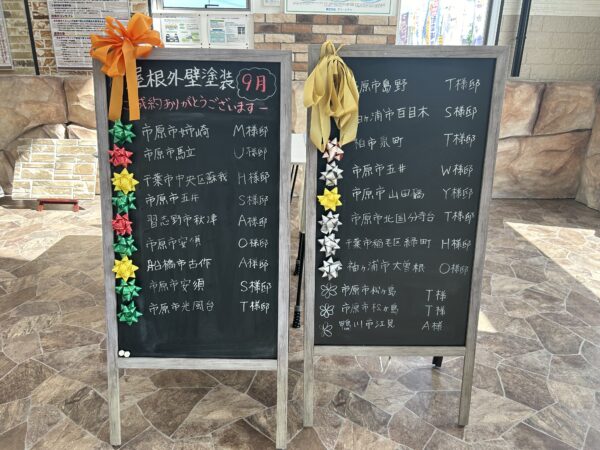 屋根外壁塗装 9月
ご成約ありがとうございます
市原市姉崎 M様邸
市原市馬立 U様邸
千葉市中央区蘇我 H様邸
市原市五井 S様邸
習志野市秋津 A様邸
市原市 O様邸
船橋市古作 A様邸
市原市 S様邸
市原市光風台 T様邸
市原市島野 T様邸
袖ヶ浦市百目木 S様邸
T様邸
市原市五井 W様邸
市原市山田橋 Y様邸
市原市北国分寺台 T様邸
千葉市稲毛区緑町 H様邸
袖ヶ浦市大曽根 O様邸
市原市松ヶ島 T様
市原市松ヶ島 T様
鴨川市江見 A様